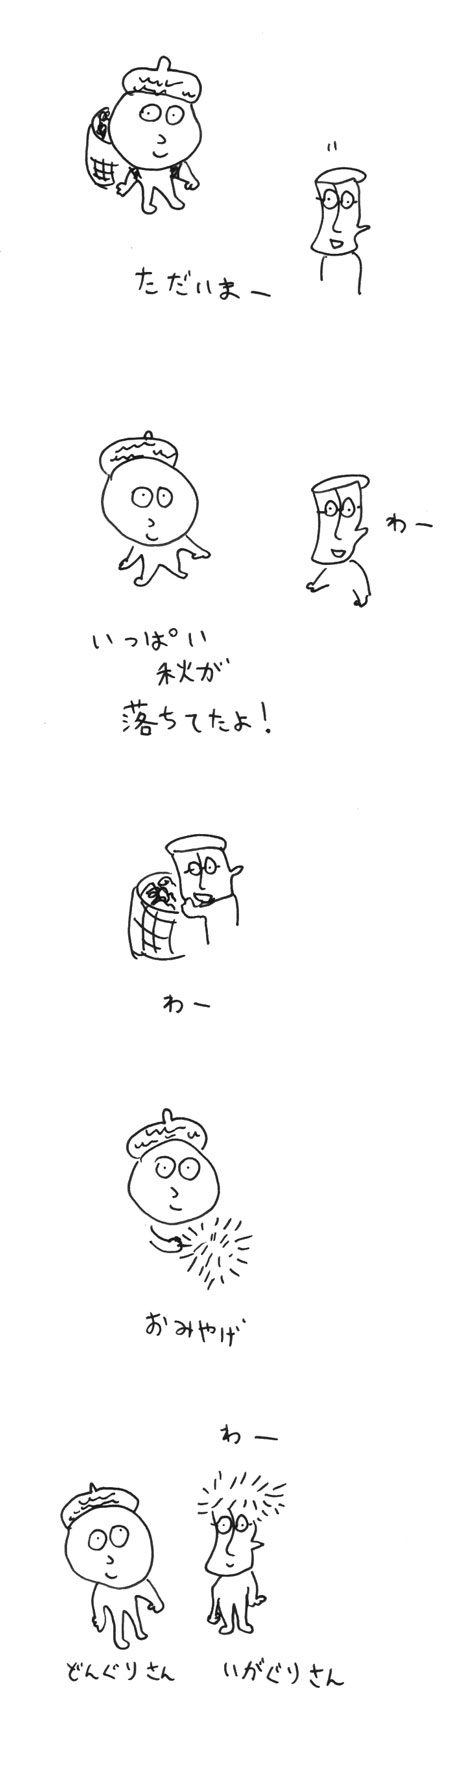 ただいまー
わー
いっぱい
秋が
落ちてたよ!
わー
おみやげ
わー
どんぐりさん
いがぐりさん